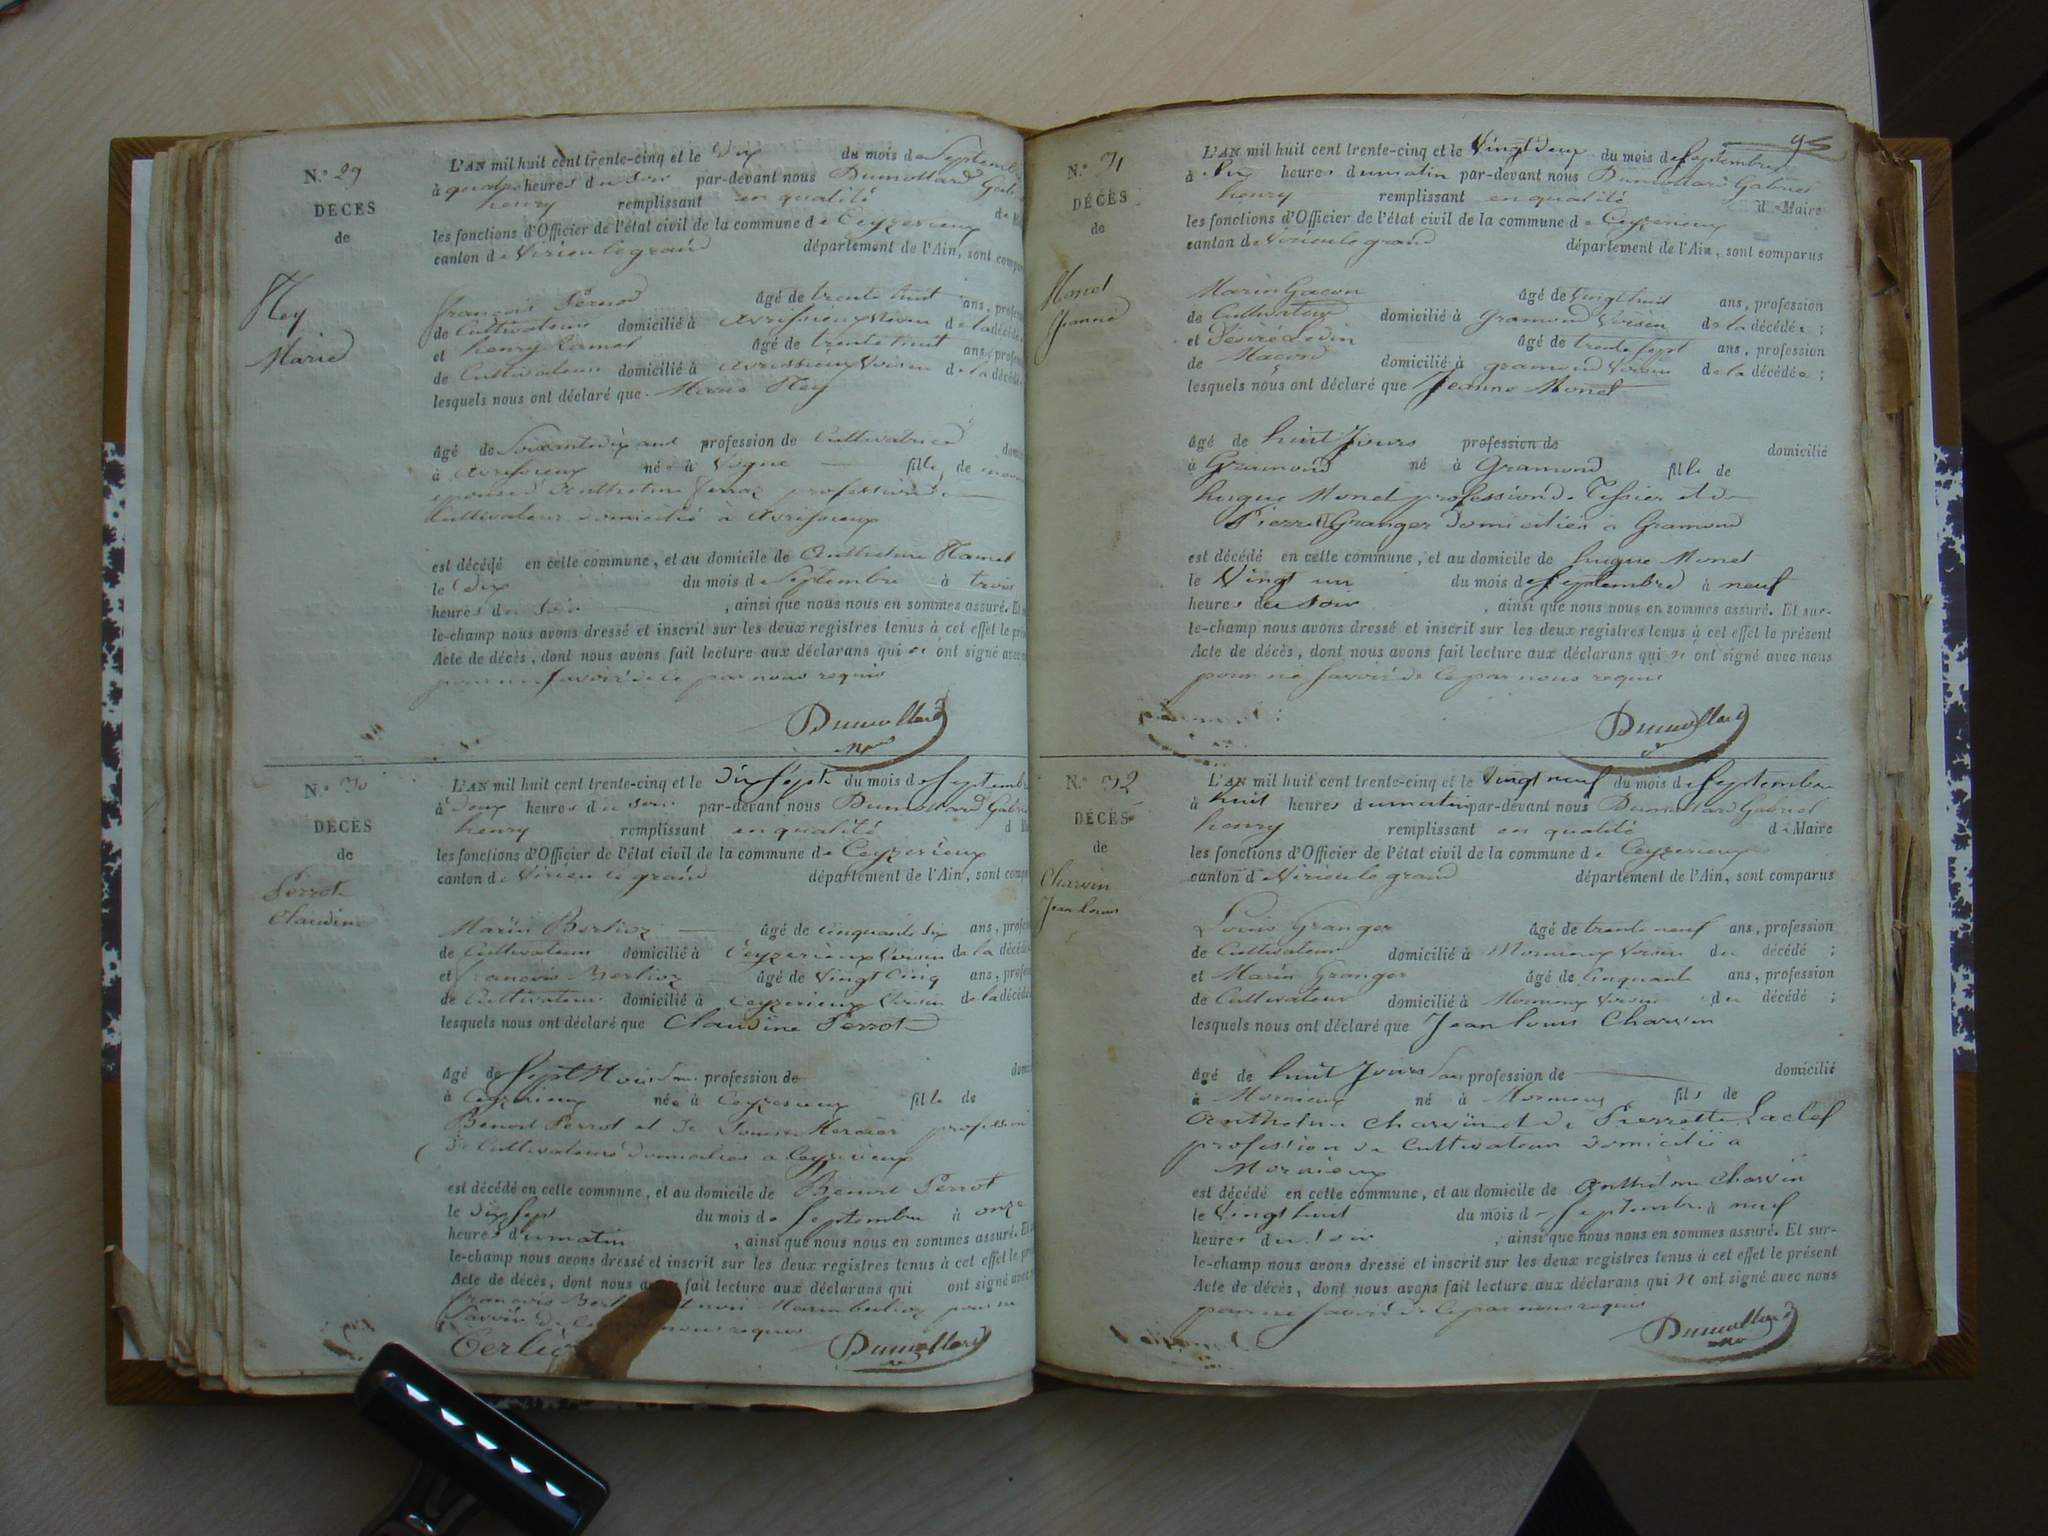 N.° 29
DÉCÈS
de
Hey
Marie
L'AN mil huit cent trente-cinq et le dix du mois de Septembre
à quatre heures du soir par-devant nous Dumollard
henry remplissant en qualité
les fonctions d'Officier de l'état civil de la commune de Ceyzerieux
canton de Virieu le grand département de l'Ain, sont
François âgé de trente huit ans,
de Cultivateur domicilié à Avrissieux Voisin de la décédée
et henry Ramel âgé de trente huit ans,
de Cultivateur domicilié à Avrissieux Voisin de la décédée
lesquels nous ont déclaré que Marie Hey
âgé de Soixante dix ans profession de Cultivatrice
à Avrissieux née à Vogne fille de
épouse d'Anthelme profession de
Cultivateur domicilié à Avrissieux
est décédé en cette commune, et au domicile de Anthelme
le dix du mois de Septembre à trois
heures du soir , ainsi que nous nous en sommes assuré. Et
le-champ nous avons dressé et inscrit sur les deux registres tenus à cet effet le
Acte de décès, dont nous avons fait lecture aux déclarans qui n ont signé
pour ne savoir de ce par nous requis
Dumollard
N.° 30
DÉCÈS
de
Perrot
Claudine
L'AN mil huit cent trente-cinq et le dix Sept du mois de Septembre
à deux heures du soir par-devant nous Dumollard
henry remplissant en qualité d
les fonctions d'Officier de l'état civil de la commune de Ceyzerieux
canton de Virieu le grand département de l'Ain, sont
Marin Berlioz âgé de Cinquante six ans,
de Cultivateur domicilié à Ceyzerieux Voisin de la
et francois Berlioz âgé de Vingt Cinq ans,
de Cultivateur domicilié à Ceyzerieux Voisin de la
lesquels nous ont déclaré que Claudine Perrot
âgé de Sept Mois profession de
à Ceyzerieux née à Ceyzerieux fille de
Benoit Perrot et de Louise Mercier profession
de Cultivateurs domiciliés a Ceyzerieux
est décédé en cette commune, et au domicile de Benoit Perrot
le dix Sept du mois de Septembre à onze
heures du matin , ainsi que nous nous en sommes assuré.
le-champ nous avons dressé et inscrit sur les deux registres tenus à cet effet le
Acte de décès, dont nous fait lecture aux déclarans qui ont signé
francois non Marin berlioz pour ne
Savoir de nous requis
Dumollard
95
N.° 31
DÉCÈS
de
Monet
Jeanne
L'AN mil huit cent trente-cinq et le Vingt deux du mois de Septembre
à heures du matin par-devant nous Dumollard Gabriel
henry remplissant en qualité de Maire
les fonctions d'Officier de l'état civil de la commune de Ceyzerieux
canton de Virieu le grand département de l'Ain, sont comparus
Marin Gacon âgé de Vingt huit ans, profession
de Cultivateur domicilié à Gramond Voisin de la décédée ;
et Désiré Livin âgé de trente Sept ans, profession
de Maçon domicilié à gramond Voisin de la décédée ;
lesquels nous ont déclaré que Jeanne Monet
âgé de huit Jours profession de domicilié
à Gramond né à Gramond fille de
hugue Monet profession de Tissier et de
Pierrette Granger domiciliés a Gramond
est décédé en cette commune, et au domicile de hugue Monet
le Vingt un du mois de Septembre à neuf
heures du soir , ainsi que nous nous en sommes assuré. Et sur-
le-champ nous avons dressé et inscrit sur les deux registres tenus à cet effet le présent
Acte de décès, dont nous avons fait lecture aux déclarans qui n ont signé avec nous
pour ne savoir de ce par nous requis
Dumollard
N.° 32
DÉCÈS
de
Charvin
Jean louis
L'AN mil huit cent trente-cinq et le Vingt neuf du mois de Septembre
à huit heures du matin par-devant nous Dumollard Gabriel
henry remplissant en qualité de Maire
les fonctions d'Officier de l'état civil de la commune de Ceyzerieux
canton de Virieu le grand département de l'Ain, sont comparus
Louis Granger âgé de trente neuf ans, profession
de Cultivateur domicilié à Mornieux Voisin du décédé ;
et Marin Granger âgé de Cinquante ans, profession
de Cultivateur domicilié à Mornieux Voisin du décédé ;
lesquels nous ont déclaré que Jean louis Charvin
âgé de huit Jours San profession de domicilié
à Mornieux né à Mornieux fils de
Anthelme Charvin et de Pierrette Laclef
profession de Cultivateur domicilié a
Mornieux
est décédé en cette commune, et au domicile de Anthelme Charvin
le Vingt huit du mois de Septembre à neuf
heures du soir , ainsi que nous nous en sommes assuré. Et sur-
le-champ nous avons dressé et inscrit sur les deux registres tenus à cet effet le présent
Acte de décès, dont nous avons fait lecture aux déclarans qui n ont signé avec nous
pour ne savoir de ce par nous requis
Dumollard